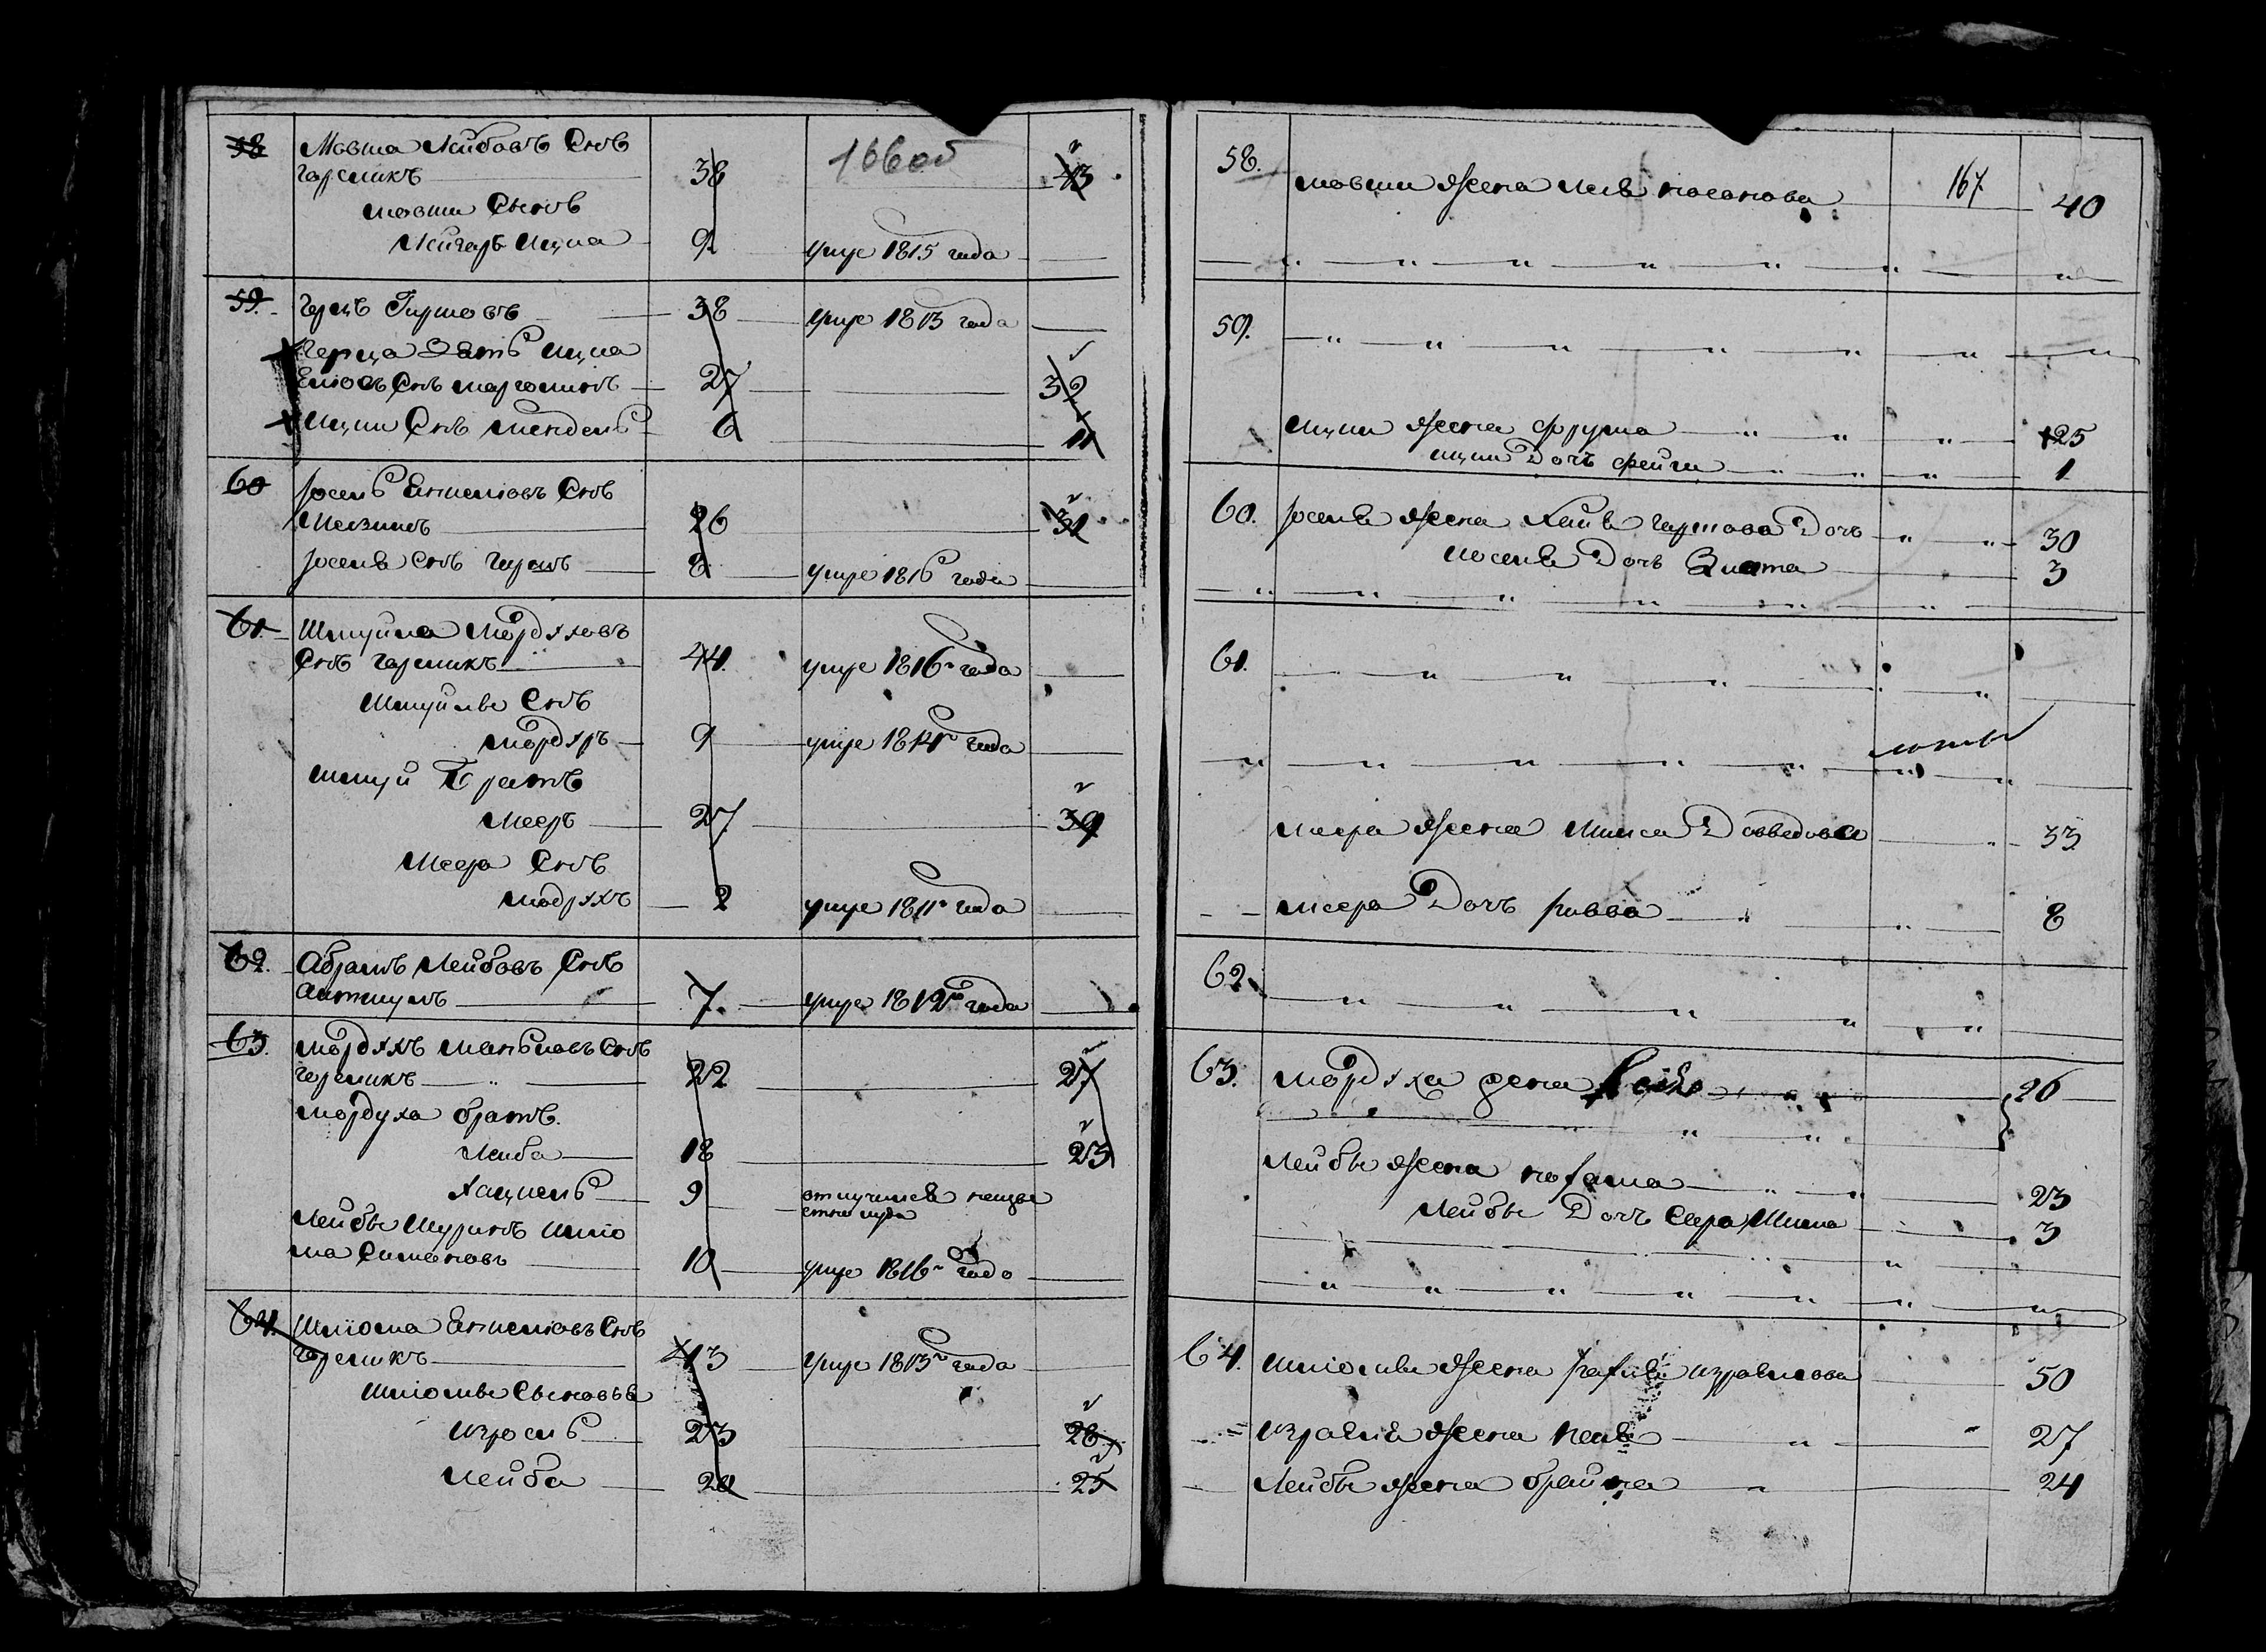 58 Мовша Лейбовъ Сынъ
Гарликъ 38 166об 43
Мовши Сынъ
Лейзаръ Ицка 9 умре 1815 года
59. Герцъ Гиршовъ 38 умре 1813 года
Герца Зять Ицка
Сынъ 27 32
Ицки Сынъ Мендель 6 11
60 Іосель Сынъ
26 31
Іоселя Сынъ 8 умре 1816 года
61. Шмуйла Мордхховъ
Сынъ Гарликъ 44. умре 1816 года
Шмуйлы Сынъ
Мордхъ 9 умре 1814 года
Шмуй Братъ
Меер 27. 39
Меера Сынъ
Модрххъ 2 умре 1811 года
62. Абрамъ Лейбовъ Сынъ
7. умре 1812 года
63. Мордххъ Сынъ
Герликъ 22 27
Мордуха братъ.
Лейба 18 23
Хацкель 9 отлучился неизве
стно куда
Лейбы Шуринъ Шлио
ма Симоновъ 10 умре 1816 года
64. Шліома Сынъ
Герликъ 43 умре 1813 года
Шліомы Сыновья
Израель 23 28
Лейба 20 25
58. Мовши Жена 167 40
59.
Ицки Жена Фрума 25
Ицки Дочь Фейга 1
60. Іоселя Жена Хая Гершова Дочь 30
Иоселя Дочь Злота 3
61.
Меера Жена Минса Довведова 33
Меера Дочь Ривва 8
62.
63. Мордхха жена 26
Лейбы Жена 23
Лейбы Дочь Сера Мина 3
64. Шліомы Жена Израилова 50
Израиля Жена 27
Лейбы Жена Брайна 24